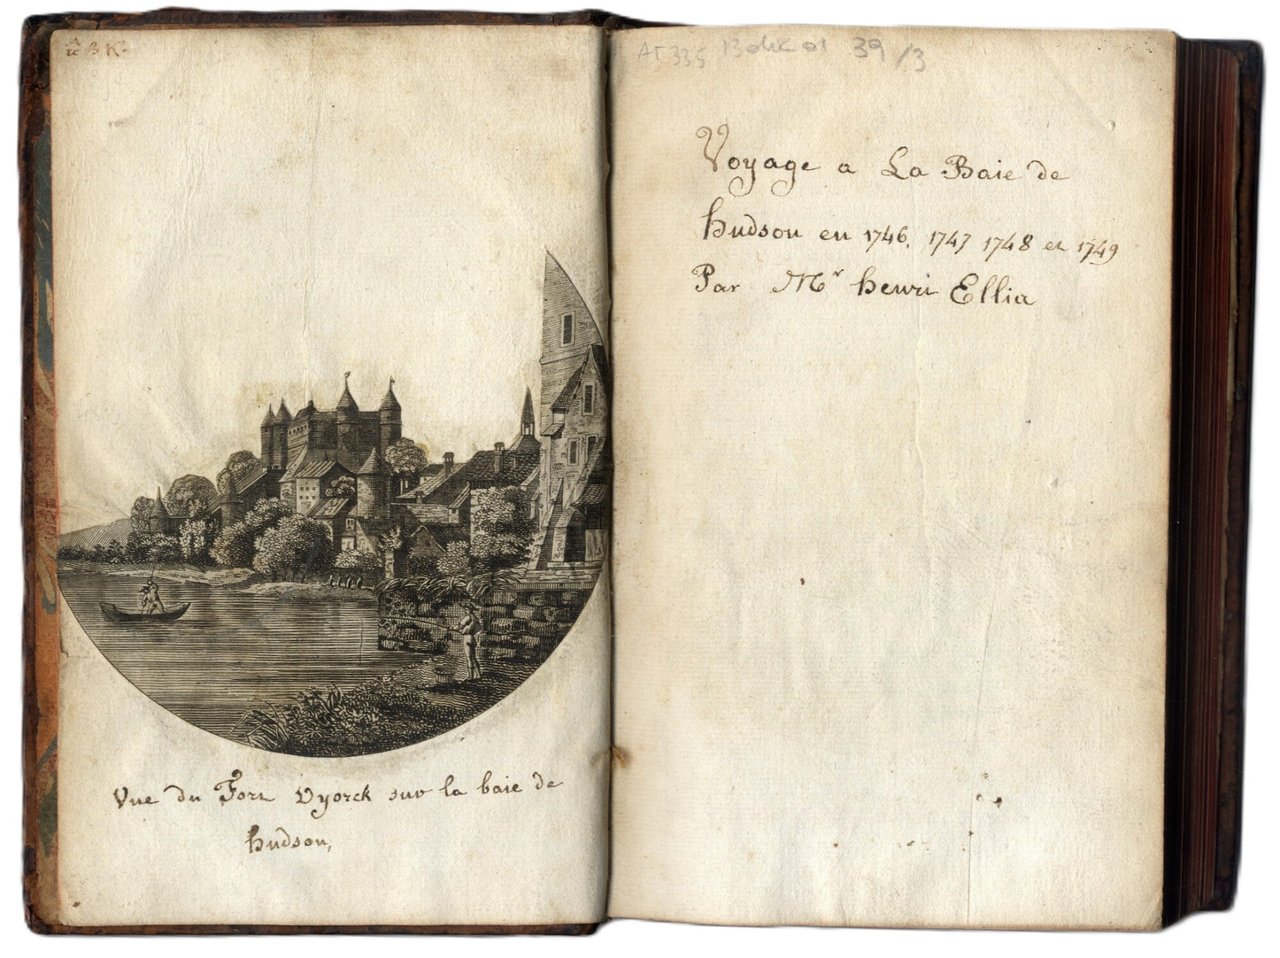 AT 335 39 /3
Vue du Fort Dyorck sur la baie de
hudson,
Voyage a La Baie de
hudson en 1746, 1747 1748 et 1749
Par Mr henri Ellia